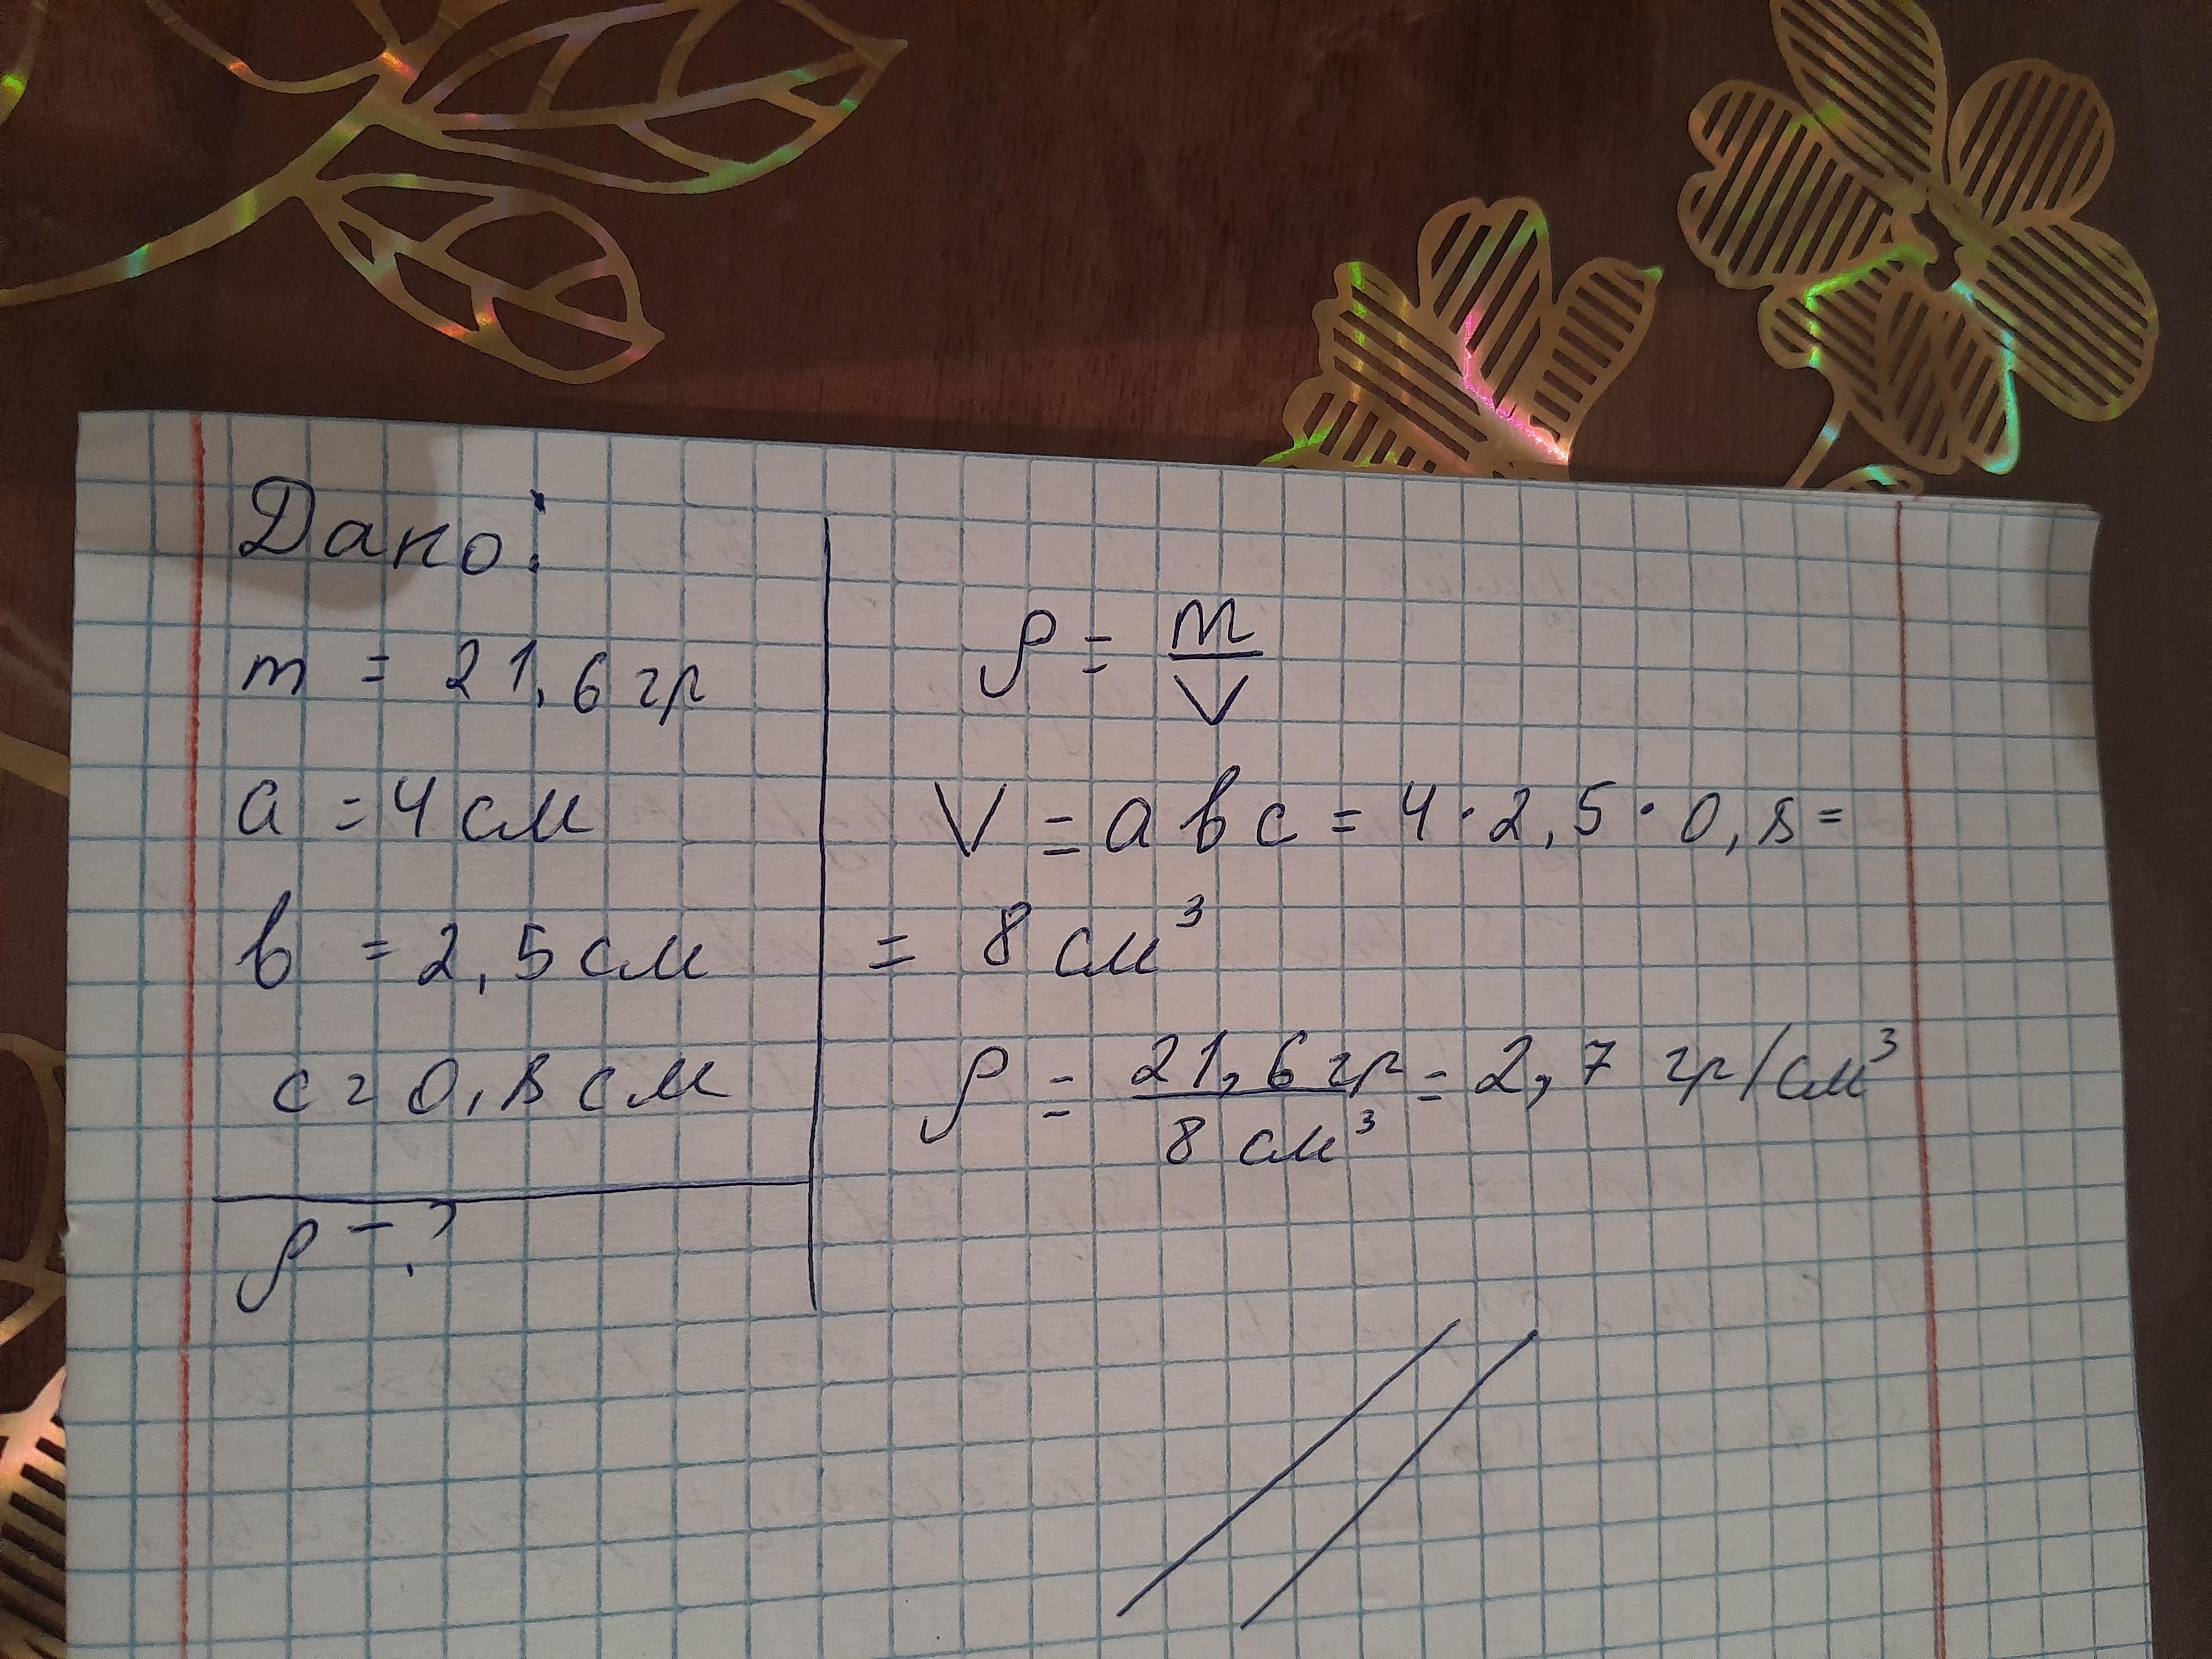 Дано:
m = 21,6 гр
a = 4 см
b = 2,5 см
c = 0,8 см
ρ = ?
ρ = m/V
V = abc = 4 · 2,5 · 0,8 =
= 8 см³
ρ = 21,6 гр / 8 см³ = 2,7 гр/см³